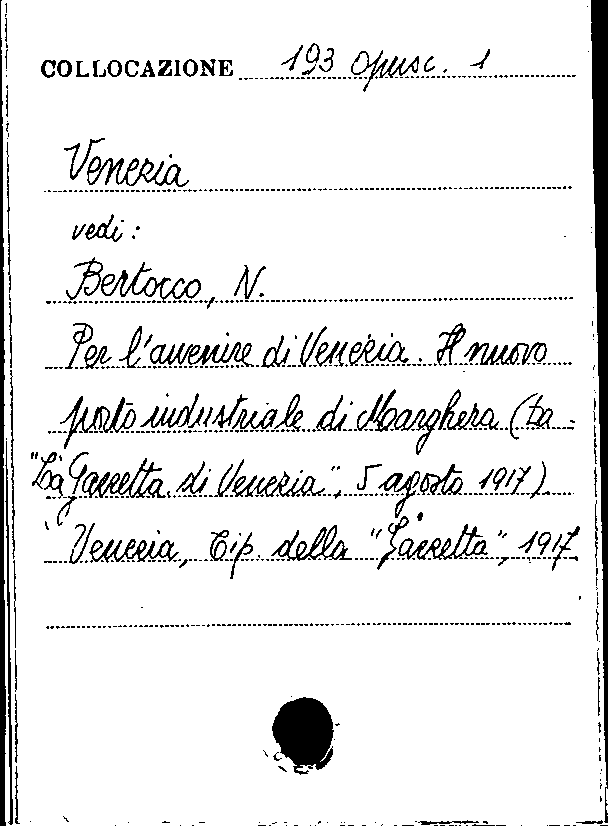 COLLOCAZIONE 193 Opusc. 1
Venezia
vedi:
Bertocco, N.
Per l'avvenire di Venezia. Il nuovo
porto industriale di Marghera (Da
"La Gazzetta di Venezia", 5 agosto 1917)
Venezia, Tip. della "Gazzetta", 1917